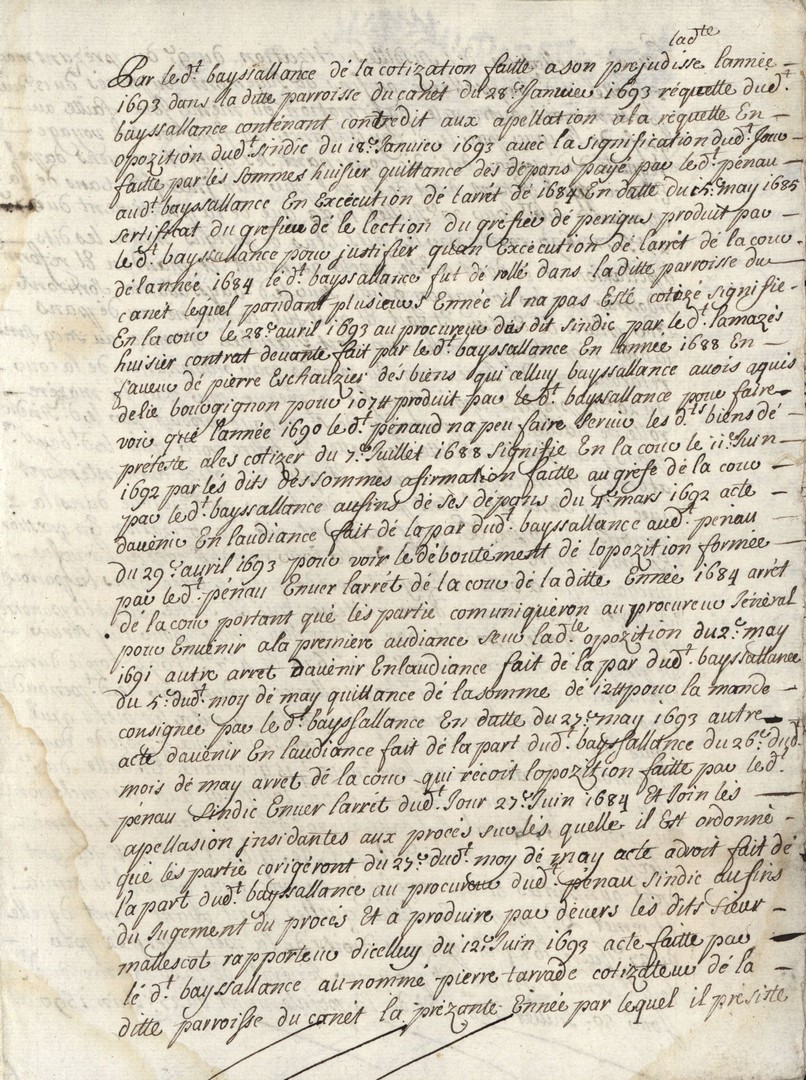 ladte
Par le dt bayssallance dé la cotization faitte a son prejudisse lannée
1693 dans la ditte parroisse du canét du 28e Janvier 1693 réquette dudt
bayssallance conténant contredit aux apellation a la réquette En
opozition dudt sindic du 18e Janvier 1693 avec la signification dudt Jour
faitte par lés sommes huisier quittance dés dépans payé par le dt pénau
audt bayssallance En Exécution dé larrét dé 1684 En datte du 15e may 1685
sertificat du grefieu dé le lection du gréfiée dé périgux produit par
le dt bayssallance pour justifier quan Exécution dé larrét dé la cour
dé lannée 1684 lé dt bayssallance fut dé rollé dans la ditte parroisse du
canét lequel pandant plusieurs Ennée il na pas Esté cotizé signifie
En la cour le 28e avril 1693 au procureur dus dit sindic par le dt lamazés
huisier contrat devante fait par le dt bayssallance En lannée 1688 En
faveur dé pierre Eschauzier dés biéns qui celluy bayssallance avois aquis
delie bourgignon pour 1074 produit par le dt bayssallance pour faire
voir qué lannée 1690 le dt pénaud na peu faire servir les dts biens dé
préfeste a les cotizer du 7e Juillet 1688 signifie En la cour le 11e Juin
1692 par lés dits déssommes afirmation faitte au gréfe dé la cour
par le dt bayssallance aufins dé sés dépans du 4e mars 1692 acte
davénir En laudiance fait dé la par dudt bayssallance audt pénau
du 29e avril 1693 pour voir le déboutémént dé lopozition formée
par le dt pénau Enver larrét dé la cour dé la ditte Ennée 1684 arrét
dé la cour portant qué lés partie comuniquéron au procureur Jénéral
pour Envénir a la premiére audiance seur la dte opozition du 2e may
1691 autre arret Davénir En laudiance fait dé la par dudt bayssallance
du 5e dudt moy dé may quittance dé la somme dé 12 pour la mande
consignée par le dt bayssallance En datte du 27e may 1693 autre
acte davénir En laudiance fait dé la part dudt bayssallance du 26e dudt
mois dé may arret dé la cour qui récoit lopozition faitte par le dt
pénau sindic Enver larrét dudt Jour 27e Juin 1684 Et Join lés
apellasion insidantes aux procés sur lés quelle il Est ordonné
qué lés partie corigéront du 27e dudt moy dé may acte advoit fait dé
la part dudt bayssallance au procureur dudt pénau sindic aufins
du Jugement du procés Et a produire par devers lés dits sieur
mallescot rapporteur dicelluy du 12e Juin 1693 acte faitte par
lé dt bayssallance au nommé pierre tarvade cotizateur dé la
ditte parroisse du canét la prézante Ennée par lequel il présiste